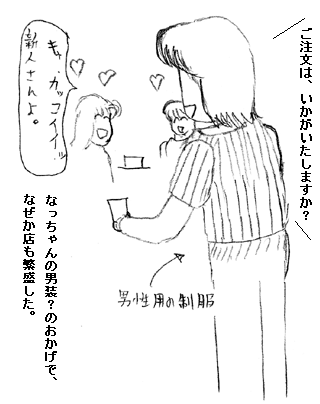 ご注文は、いかがいたしますか？
キャ、カッコイイ！！
新人さんよ。
男性用の制服
なっちゃんの男装？のおかげで、
なぜか店も繁盛した。